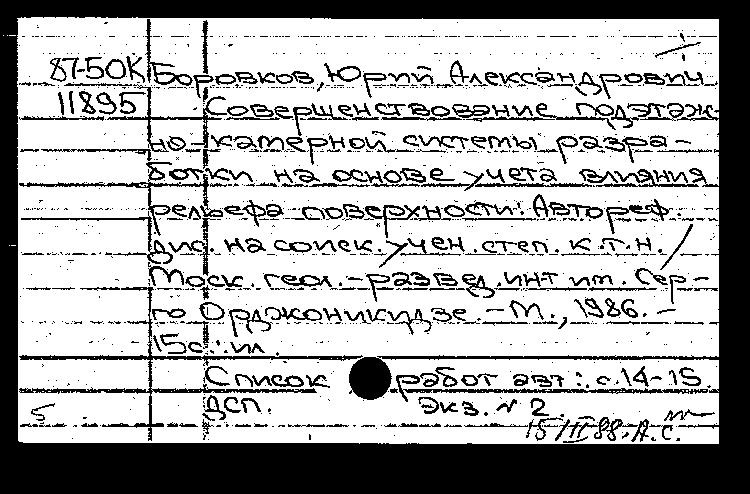 87-50К Боровков, Юрий Александрович
11895 Совершенствование подэтаж-
но-камерной системы разра-
ботки на основе учета влияния
рельефа поверхности: Автореф.
дис. на соиск. учен. степ. к.т.н.
Моск. геол.-развед. инт им. Сер-
го Орджоникидзе. - М., 1986. -
15с.: ил.
Список работ авт.: с.14-15.
ДСП. Экз. № 2.
5 15/III 88. А.С.